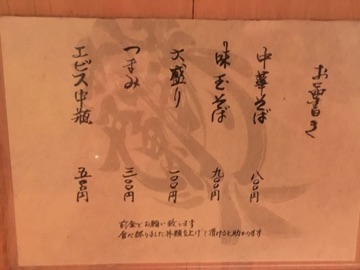 お品書き
中華そば 八〇〇円
味玉そば 九〇〇円
大盛り 一〇〇円
つまみ 三〇〇円
エビス中瓶 五〇〇円
前金でお願い致します
食べ終りました丼類を上げて頂けると助かります